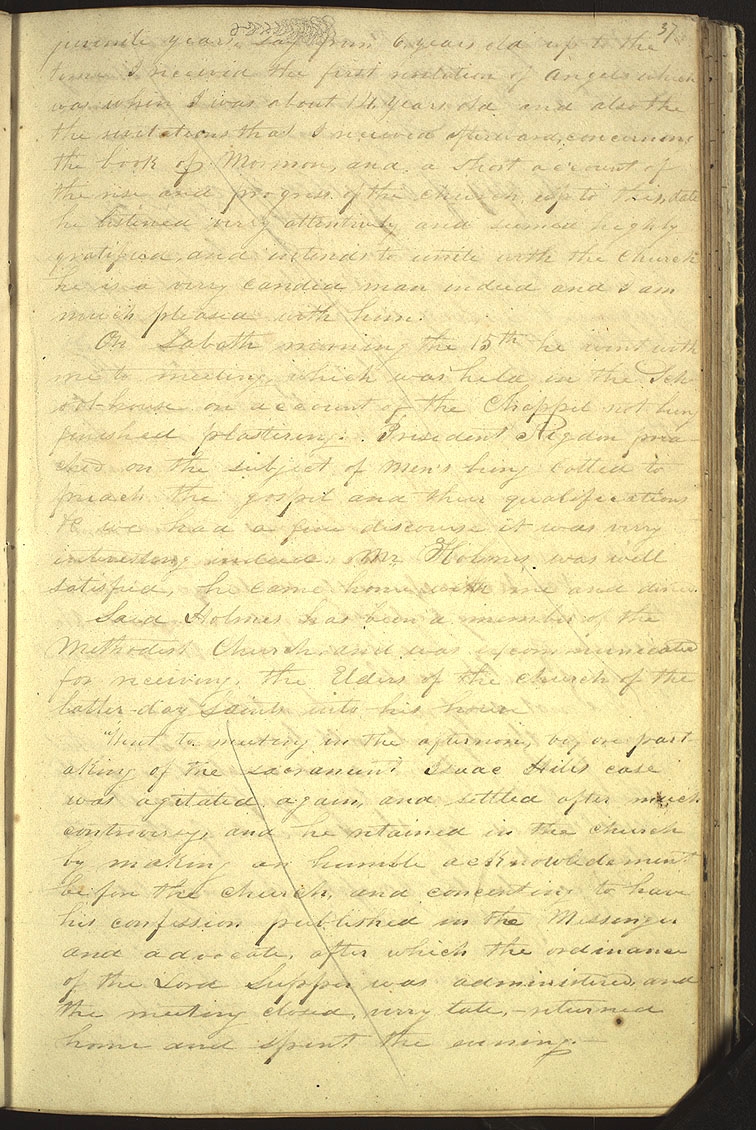 37
juvenile years, say from 6, years old up to the
time I received the first visitation of angels which
was when I was about 14, years old and also the
the visitations that I received afterward, concerning
the book of Mormon, and a short account of
the rise and progress of the church, up to this, date
he listened very attentively and seemed highly
gratified, and intends to unite with the Church
he is a very candid man indeed and I am
much pleased with him.
On Sabath morning the 15th he went with
me to meeting, which was held in the Sch-
ool-house on account of the Chappel not being
finished plastering. President Rigdon prea-
ched on the subject of men's being called to
preach the gospel and their qualifications
&c we had a fine discourse it was very
interesting indeed. Mr. Holmes was well
satisfied, he came home with me and dined.
Said Holmes has been a member of the
Methodist Church, and was excommunicated
for receiving, the Elders of the church of the
latter-day Saints into his house
Went to meeting in the afternoon, before part-
aking of the sacrament Isaac Hills case
was agitated again, and settled after much
controversy, and he retained in the church
by making an humble acknowledement
before the church, and concenting to have
his confession published in the Messenger
and advocate, after which the ordinance
of the Lord Supper was administered, and
the meeting closed, very late, - returned
home and spent the evening. -